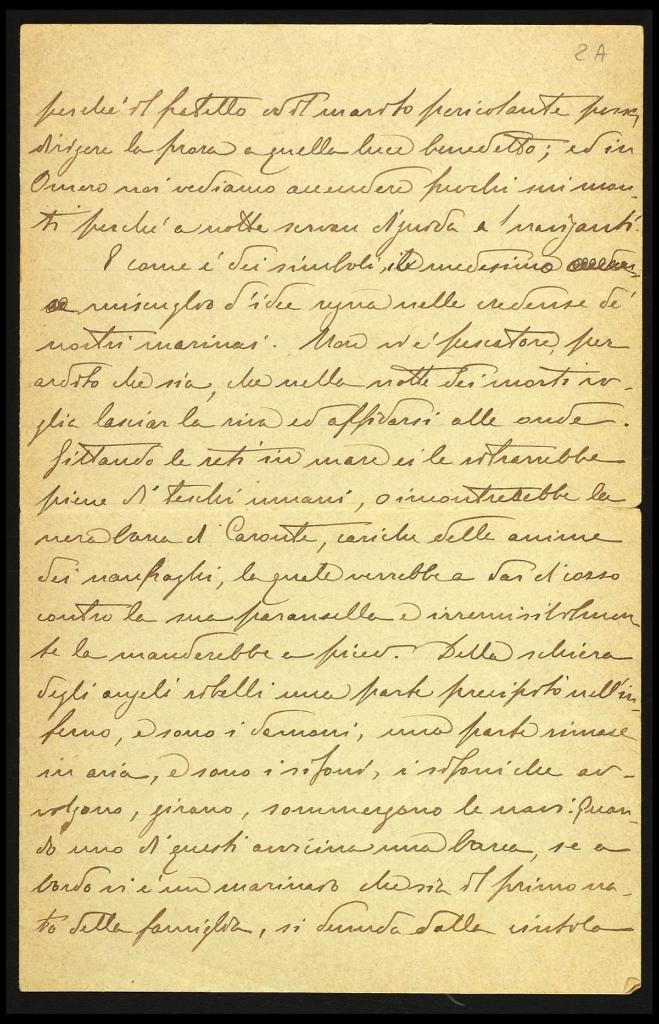 2A
perchè il fratello od il marito pericolante possa
dirigere la prora a quella luce benedetta; ed in
Omero noi vediamo accendere fuochi sui mon-
ti perchè a notte servan di guida a' naviganti.
E come è dei simboli, il medesimo
miscuglio d'idee regna nelle credenze de'
nostri marinai. Non vi è pescatore, per
ardito che sia, che nella notte dei morti vo-
glia lasciar la riva ed affidarsi alle onde.
Gittando le reti in mare ei le ritrarrebbe
piene di teschi umani, o incontrerebbe la
nera barca di Caronte, cariche delle anime
dei naufraghi, la quale verrebbe a dar di cozzo
contro la sua paranzella e irremissibilmen-
te la manderebbe a picco. Della schiera
degli angeli ribelli una parte precipitò nell'in-
ferno, e sono i demoni, una parte rimase
in aria, e sono i sifoni, i sifoni che av-
volgono, girano, sommergono le navi. Quan-
do uno di questi avvicina una barca, se a
bordo vi è un marinaro che sia il primo na-
to della famiglia, si denuda dalla cintola